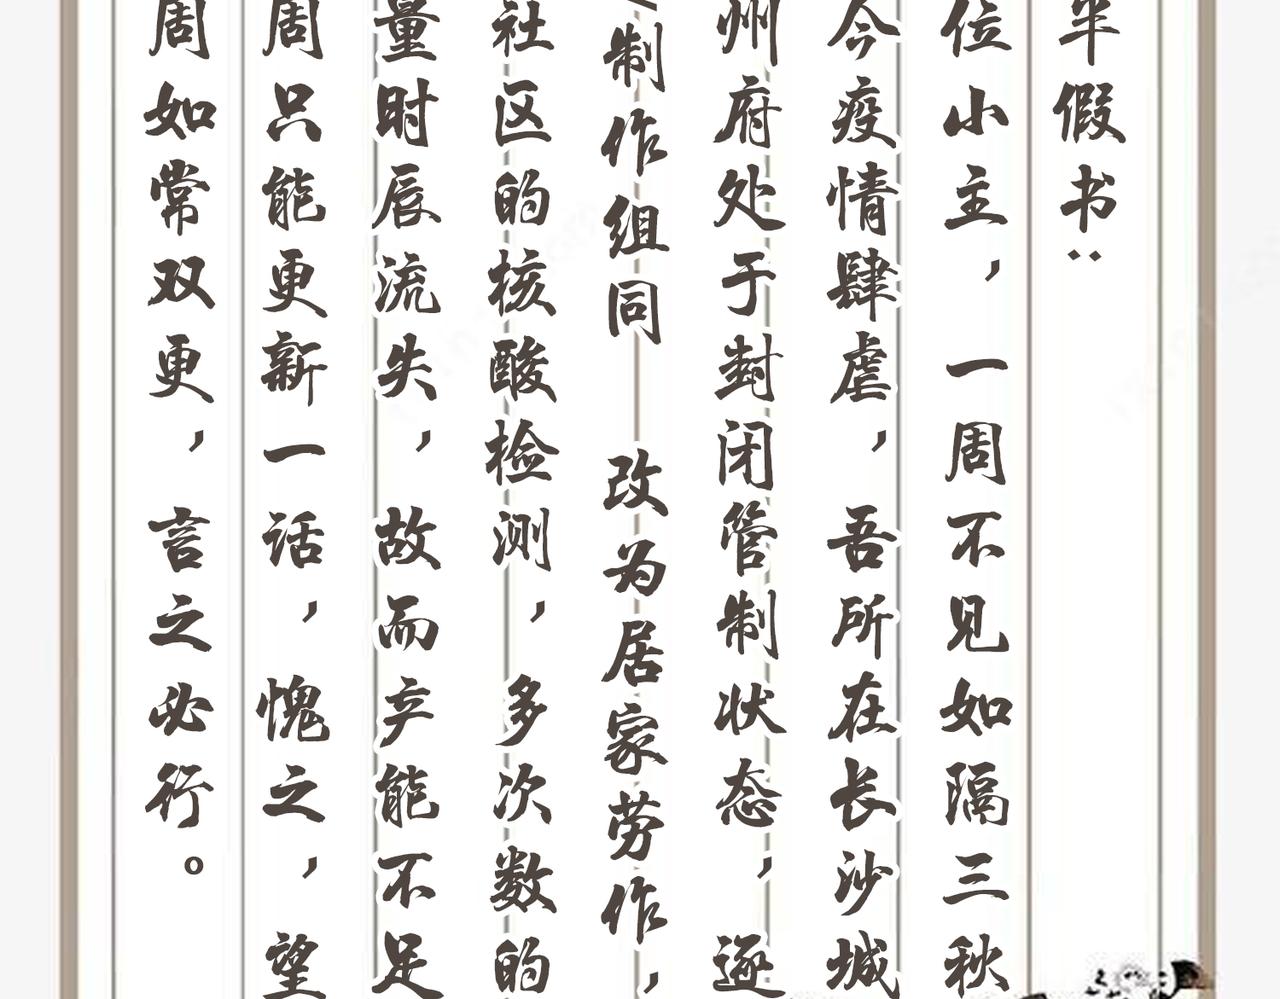 半假书：
位小主，一周不见如隔三秋
今疫情肆虐，吾所在长沙城
州府处于封闭管制状态，逐
制作组同 改为居家劳作，
社区的核酸检测，多次数的
量时唇流失，故而产能不足
周只能更新一话，愧之，望
周如常双更，言之必行。